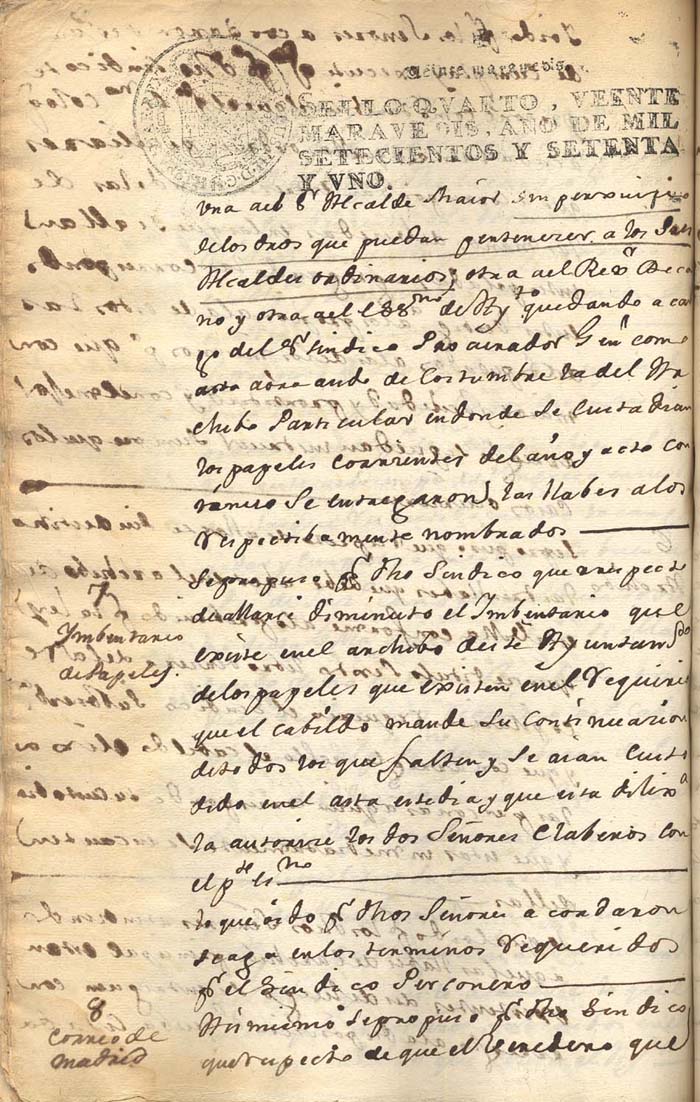 Veinte maravedis
SELLO QVARTO, VEINTE
MARAVEDIS, AÑO DE MIL
SETECIENTOS Y SETENTA
Y VNO.
Una al Sr Alcalde Maior sin perxuizio
de los dros que puedan pertenezer a los
Alcaldes ordinarios, otra al Rexr Deca
no y otra al esno de Aytto quedando a car
go del Sr Sindico Procurador Gral como
asta aora ando de Costumbre la del Ar
chibo Particular en donde Se Custodian
los papeles Corrientes del año, y acto con
tinuo Se entregaron las llabes a los
respectibamente nombrados
7
Ymbentario
de Papeles.
Se propuso pr dho Sindico que respecto
de allarse diminuto el Ymbentario que
existe en el archibo de este Ayuntamto
de los papeles que existen en el requirio
que el cabildo mande Su Continuazion
de todos los que falten y Se aian Custo
dido en el asta este dia y que esta dilixa
la autorize los dos Señores Claberos con
el pste esno
Lo que oido pr dhos Señores acordaron
se aga en los terminos requeridos
pr el Sindico Personero
8
Correo de
Madrid
Asimismo Se propuso pr dho Sindico
que respecto de que el Veredero que